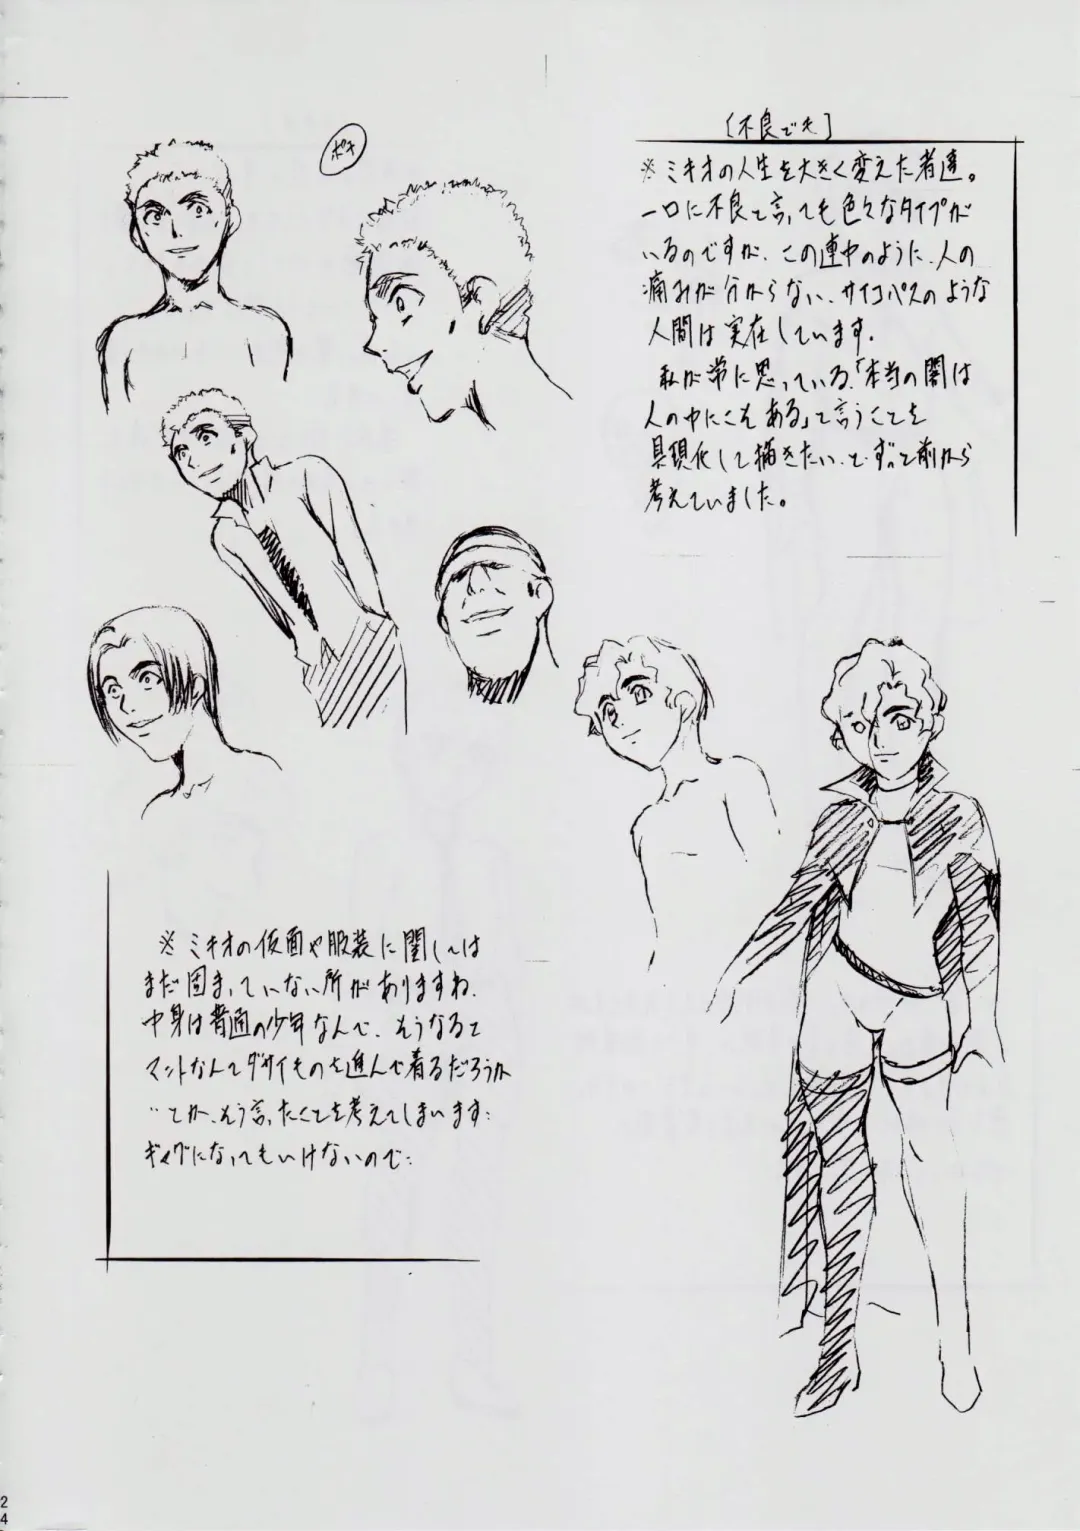 〔不良ども〕
※ミキオの人生を大きく変えた者達。
一口に不良と言っても色々なタイプが
いるのですが、この連中のように、人の
痛みが分からない、サイコパスのような
人間は実在しています。
私が常に思っている、「本当の闇は
人の中にこそある」と言うことを
具現化して描きたい、と、ずっと前から
考えていました。
ボキ
※ミキオの仮面や服装に関しては
まだ固まっていない所がありますね、
中身は普通の少年なんで、そうなると
マントなんてダサイものを進んで着るだろうか
…とか、そう言ったことを考えてしまいます…
ギャグになってもいけないので…
24